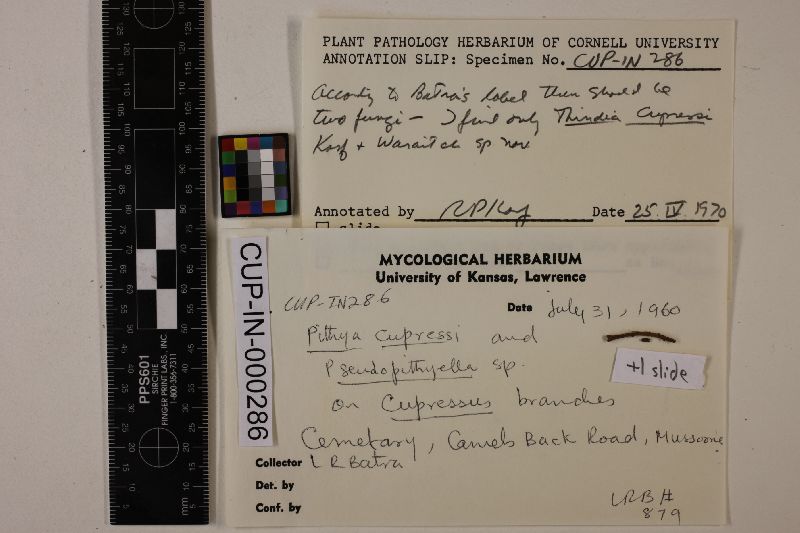 PLANT PATHOLOGY HERBARIUM OF CORNELL UNIVERSITY
ANNOTATION SLIP: Specimen No. CUP-IN 286
According to Batra's label there should be
two fungi - I find only Thindia Cupressi
Korf + Waraitch sp nov
Annotated by RP Korf Date 25. IV. 1970
slide
MYCOLOGICAL HERBARIUM
University of Kansas, Lawrence
CUP-IN286
Date July 31, 1960
Pithya Cupressi and
Pseudopithyella sp.
on Cupressus branches
+1 slide
Cemetary, Camels Back Road, Mussoorie
Collector L R Batra
Det. by
Conf. by
LRB #
879
CUP-IN-000286
PPS601
SIRCHIE
FINGER PRINT LABS, INC.
1-800-356-7311
mm 5 10 15 20 25 30 35 40 45 50 55 60 65 70 75 80 85 90 95 100 105 110 115 120 125 130